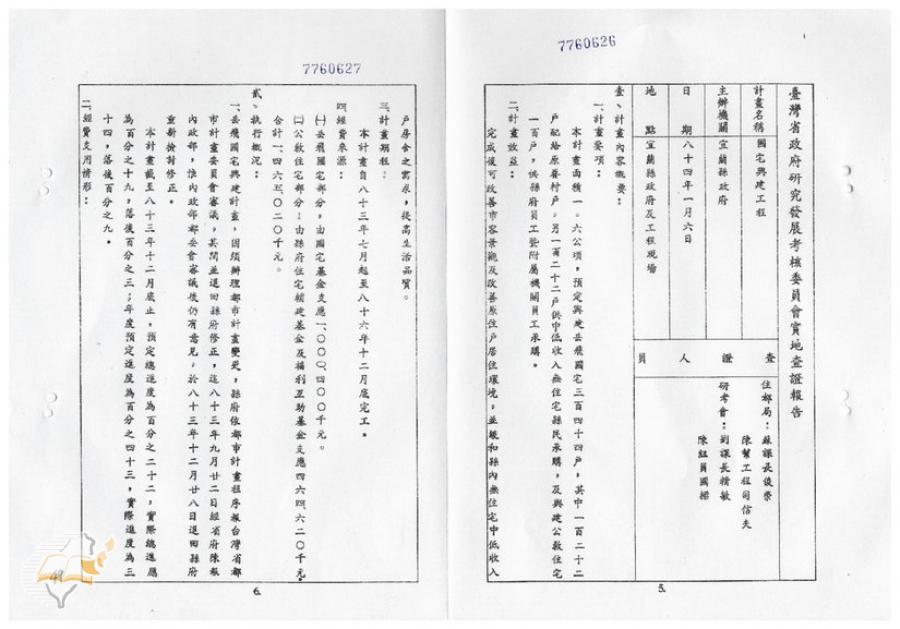 7760626
臺灣省政府研究發展考核委員會實地查證報告
計畫名稱 國宅興建工程
主辦機關 宜蘭縣政府
日期 八十四年一月六日
地點 宜蘭縣政府及工程現場
查證人員
住都局：蘇課長俊榮
陳幫工程司信夫
研考會：劉課長精敏
陳組員國樑
壹、計畫內容概要：
一、計畫要項：
本計畫面積一．六公頃，預定興建岳飛國宅三百四十四戶，其中一百二十二
戶配給原眷村戶，另一百二十二戶供中低收入無住宅縣民承購，及興建公教住宅
一百戶，供縣府員工暨附屬機關員工承購。
二、計畫效益：
完成後可改善市容景觀及改善原住戶居住環境，並緩和縣內無住宅中低收入
5.
7760627
戶房舍之需求，提高生活品質。
三、計畫期程：
本計畫自八十三年七月起至八十六年十二月底完工。
四、經費來源：
㈠岳飛國宅部分，由國宅基金支應一、○○○、四○○千元。
㈡公教住宅部分：由縣府住宅輔建基金及福利互助基金支應四六四、六二○千元。
合計一、四六五、○二○千元。
貳、執行概況：
一、岳飛國宅興建計畫，因須辦理都市計畫變更，縣府依都市計畫程序報台灣省都
市計畫委員會審議，其間並退回縣府修正，迄八十三年九月廿二日經省府陳報
內政部，惟內政部都委會審議後仍有意見，於八十三年十二月廿八日退回縣府
重新檢討修正。
本計畫截至八十三年十二月底止，預定總進度為百分之二十二，實際總進度
為百分之十九，落後百分之三；年度預定進度為百分之四十三，實際進度為三
十四，落後百分之九。
二、經費支用情形：
6.